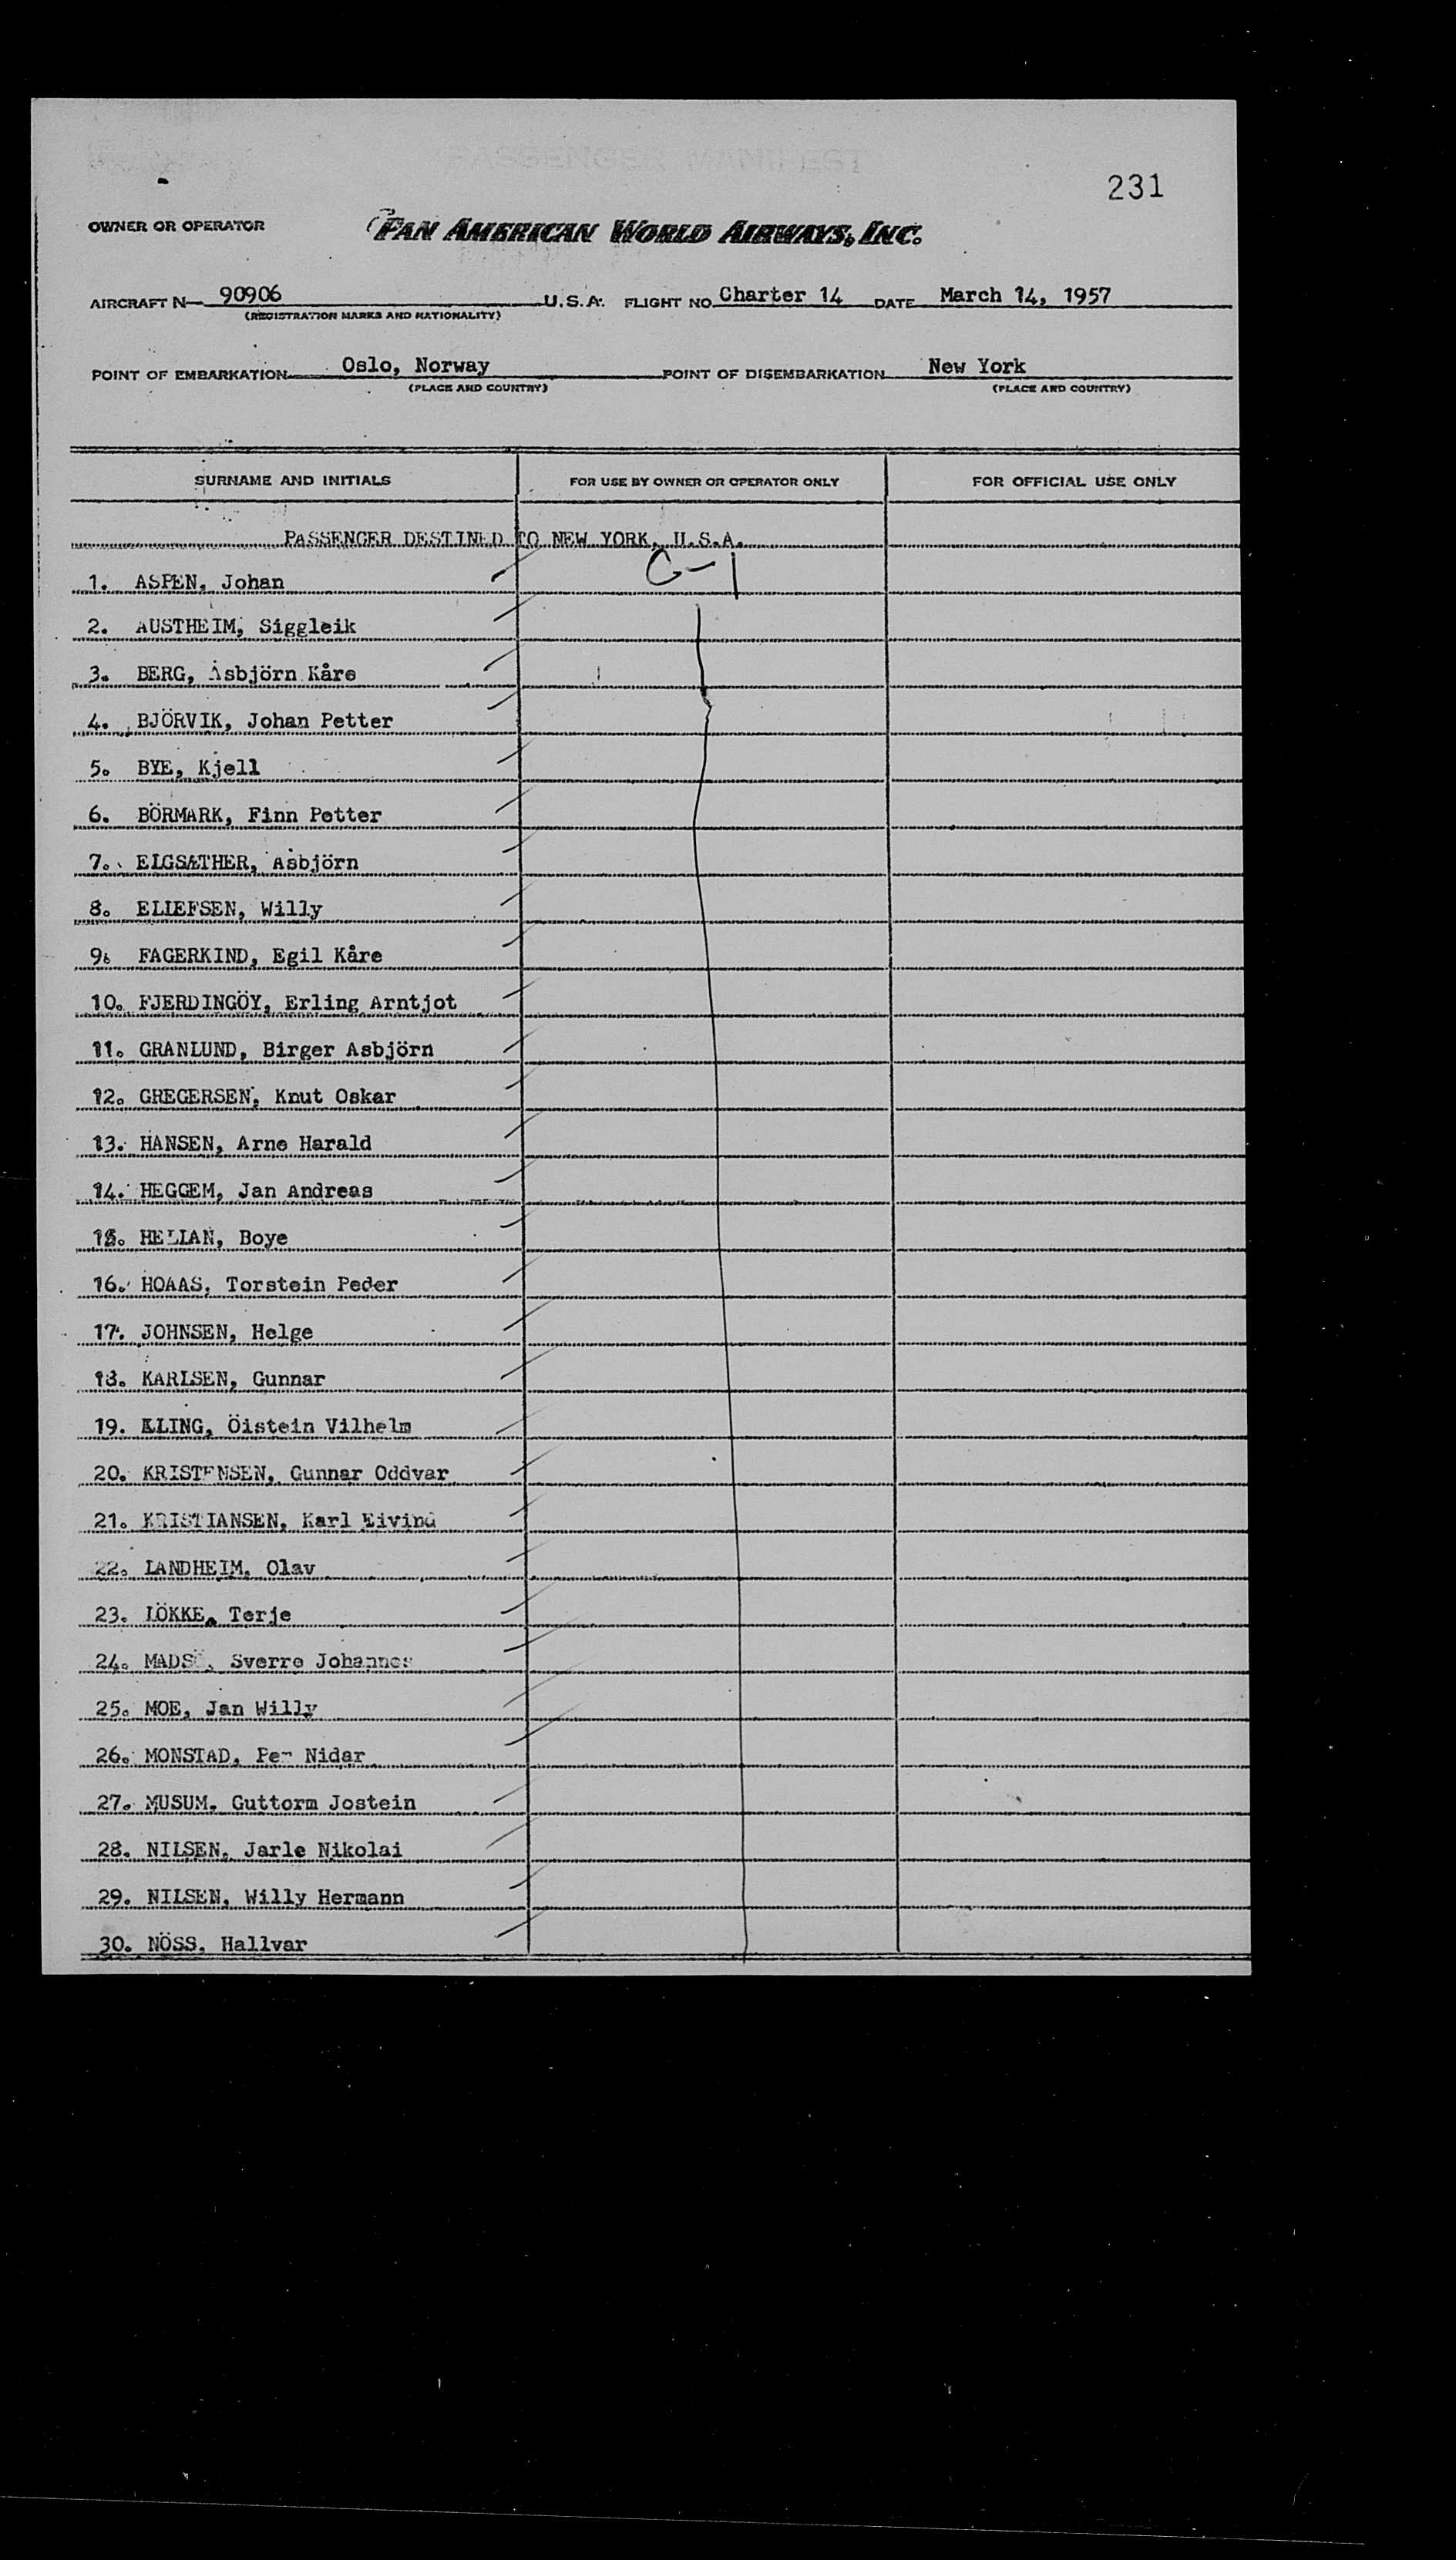 PASSENGER MANIFEST
231
OWNER OR OPERATOR PAN AMERICAN WORLD AIRWAYS, INC.
AIRCRAFT N- 90906 U.S.A. FLIGHT NO. Charter 14 DATE March 14, 1957
(REGISTRATION MARKS AND NATIONALITY)
POINT OF EMBARKATION Oslo, Norway POINT OF DISEMBARKATION New York
(PLACE AND COUNTRY) (PLACE AND COUNTRY)
SURNAME AND INITIALS FOR USE BY OWNER OR OPERATOR ONLY FOR OFFICIAL USE ONLY
PASSENGER DESTINED TO NEW YORK, U.S.A.
1. ASPEN, Johan C-1
2. AUSTHEIM, Siggleik
3. BERG, Asbjörn Kåre
4. BJÖRVIK, Johan Petter
5. BYE, Kjell
6. BÖRMARK, Finn Petter
7. ELGSÆTHER, Asbjörn
8. ELIEFSEN, Willy
9. FAGERKIND, Egil Kåre
10. FJERDINGÖY, Erling Arntjot
11. GRANLUND, Birger Asbjörn
12. GREGERSEN, Knut Oskar
13. HANSEN, Arne Harald
14. HEGGEM, Jan Andreas
15. HELIAN, Boye
16. HOAAS, Torstein Peder
17. JOHNSEN, Helge
18. KARLSEN, Gunnar
19. KLING, Öistein Vilhelm
20. KRISTENSEN, Gunnar Oddvar
21. KRISTIANSEN, Karl Eivind
22. LANDHEIM, Olav
23. LÖKKE, Terje
24. Sverre Johannes
25. MOE, Jan Willy
26. MONSTAD, Per Nidar
27. MUSUM, Guttorm Jostein
28. NILSEN, Jarle Nikolai
29. NILSEN, Willy Hermann
30. NÖSS, Hallvar